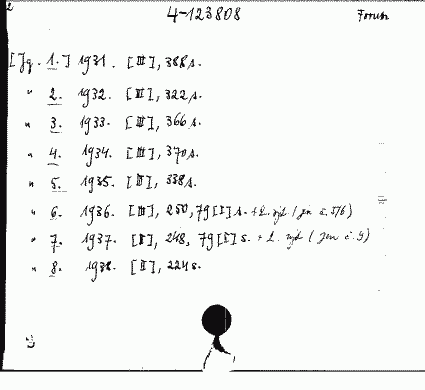 2
4-123808 Forum
[Jg. 1.] 1931. [III], 388 s.
" 2. 1932. [II], 322 s.
" 3. 1933. [II], 366 s.
" 4. 1934. [III], 370 s.
" 5. 1935. [II], 338 s.
" 6. 1936. [III], 250, 79 [I] s. + 2. (jen č. 5/6)
" 7. 1937. [I], 248, 79 [I] s. + 2. (jen č. 9)
" 8. 1938. [I], 224 s.